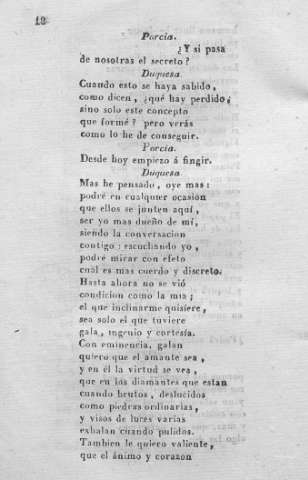 12
Porcia.
¿Y si pasa
de nosotras el secreto?
Duquesa
Cuando esto se haya sabido,
como dicen, ¿qué hay perdido,
sino solo este concepto
que formé? pero verás
como lo he de conseguir.
Porcia.
Desde hoy empiezo á fingir.
Duquesa
Mas he pensado, oye mas:
podré en cualquier ocasion
que ellos se junten aquí,
ser yo mas dueño de mí,
siendo la conversacion
contigo: escuchando yo,
podré mirar con efeto
cuál es mas cuerdo y discreto.
Hasta ahora no se vió
condicion como la mia;
el que inclinarme quisiere,
sea solo el que tuviere
gala, ingenio y cortesía.
Con eminencia, galan
quiero que el amante sea,
y en él la virtud se vea,
que en los diamantes que estan
cuando brutos, deslucidos
como piedras ordinarias,
y visos de luces varias
exhalan cuando pulidos.
Tambien le quiero valiente,
que el ánimo y corazon